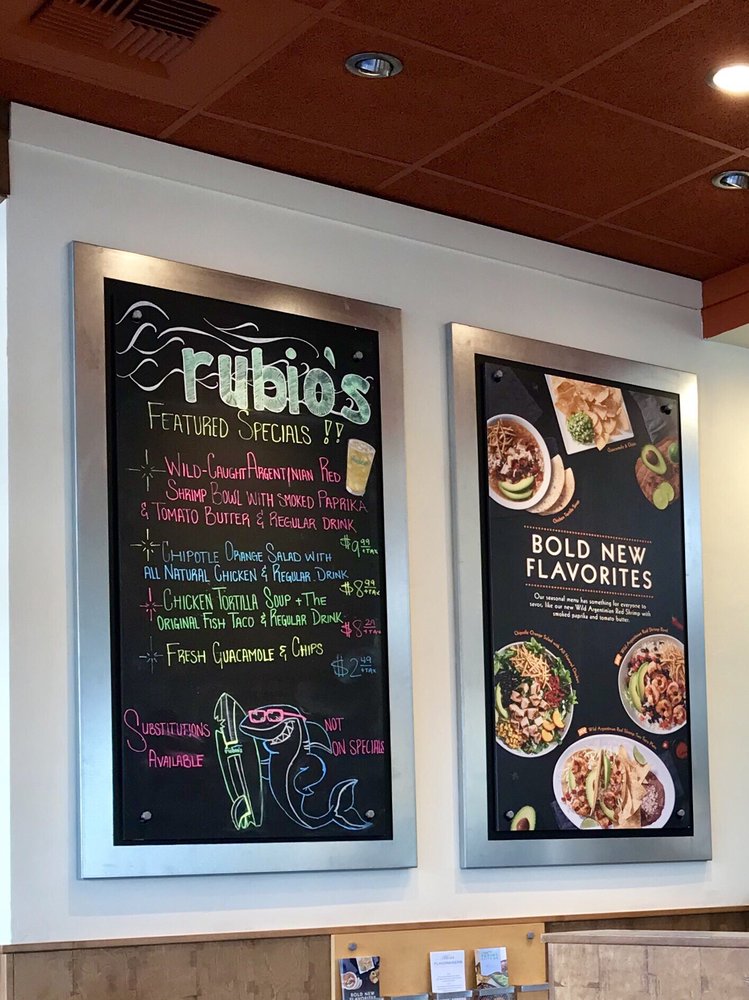 rubio's
FEATURED SPECIALS !!
WILD-CAUGHT ARGENTINIAN RED
SHRIMP BOWL WITH SMOKED PAPRIKA
& TOMATO BUTTER & REGULAR DRINK
$9.99 +TAX
CHIPOTLE ORANGE SALAD WITH
ALL NATURAL CHICKEN & REGULAR DRINK
$8.99 +TAX
CHICKEN TORTILLA SOUP + THE
ORIGINAL FISH TACO & REGULAR DRINK
+TAX
FRESH GUACAMOLE & CHIPS
$2.49 +TAX
SUBSTITUTIONS
AVAILABLE
NOT
ON SPECIALS
Guacamole & Chips
Chicken Tortilla Soup
BOLD NEW
FLAVORITES
Our seasonal menu has something for everyone to
savor, like our new Wild Argentinian Red Shrimp with
smoked paprika and tomato butter.
Chipotle Orange Salad with All Natural Chicken
Wild Argentinian Red Shrimp Bowl
Wild Argentinian Red Shrimp Two Taco Plate
BOLD NEW